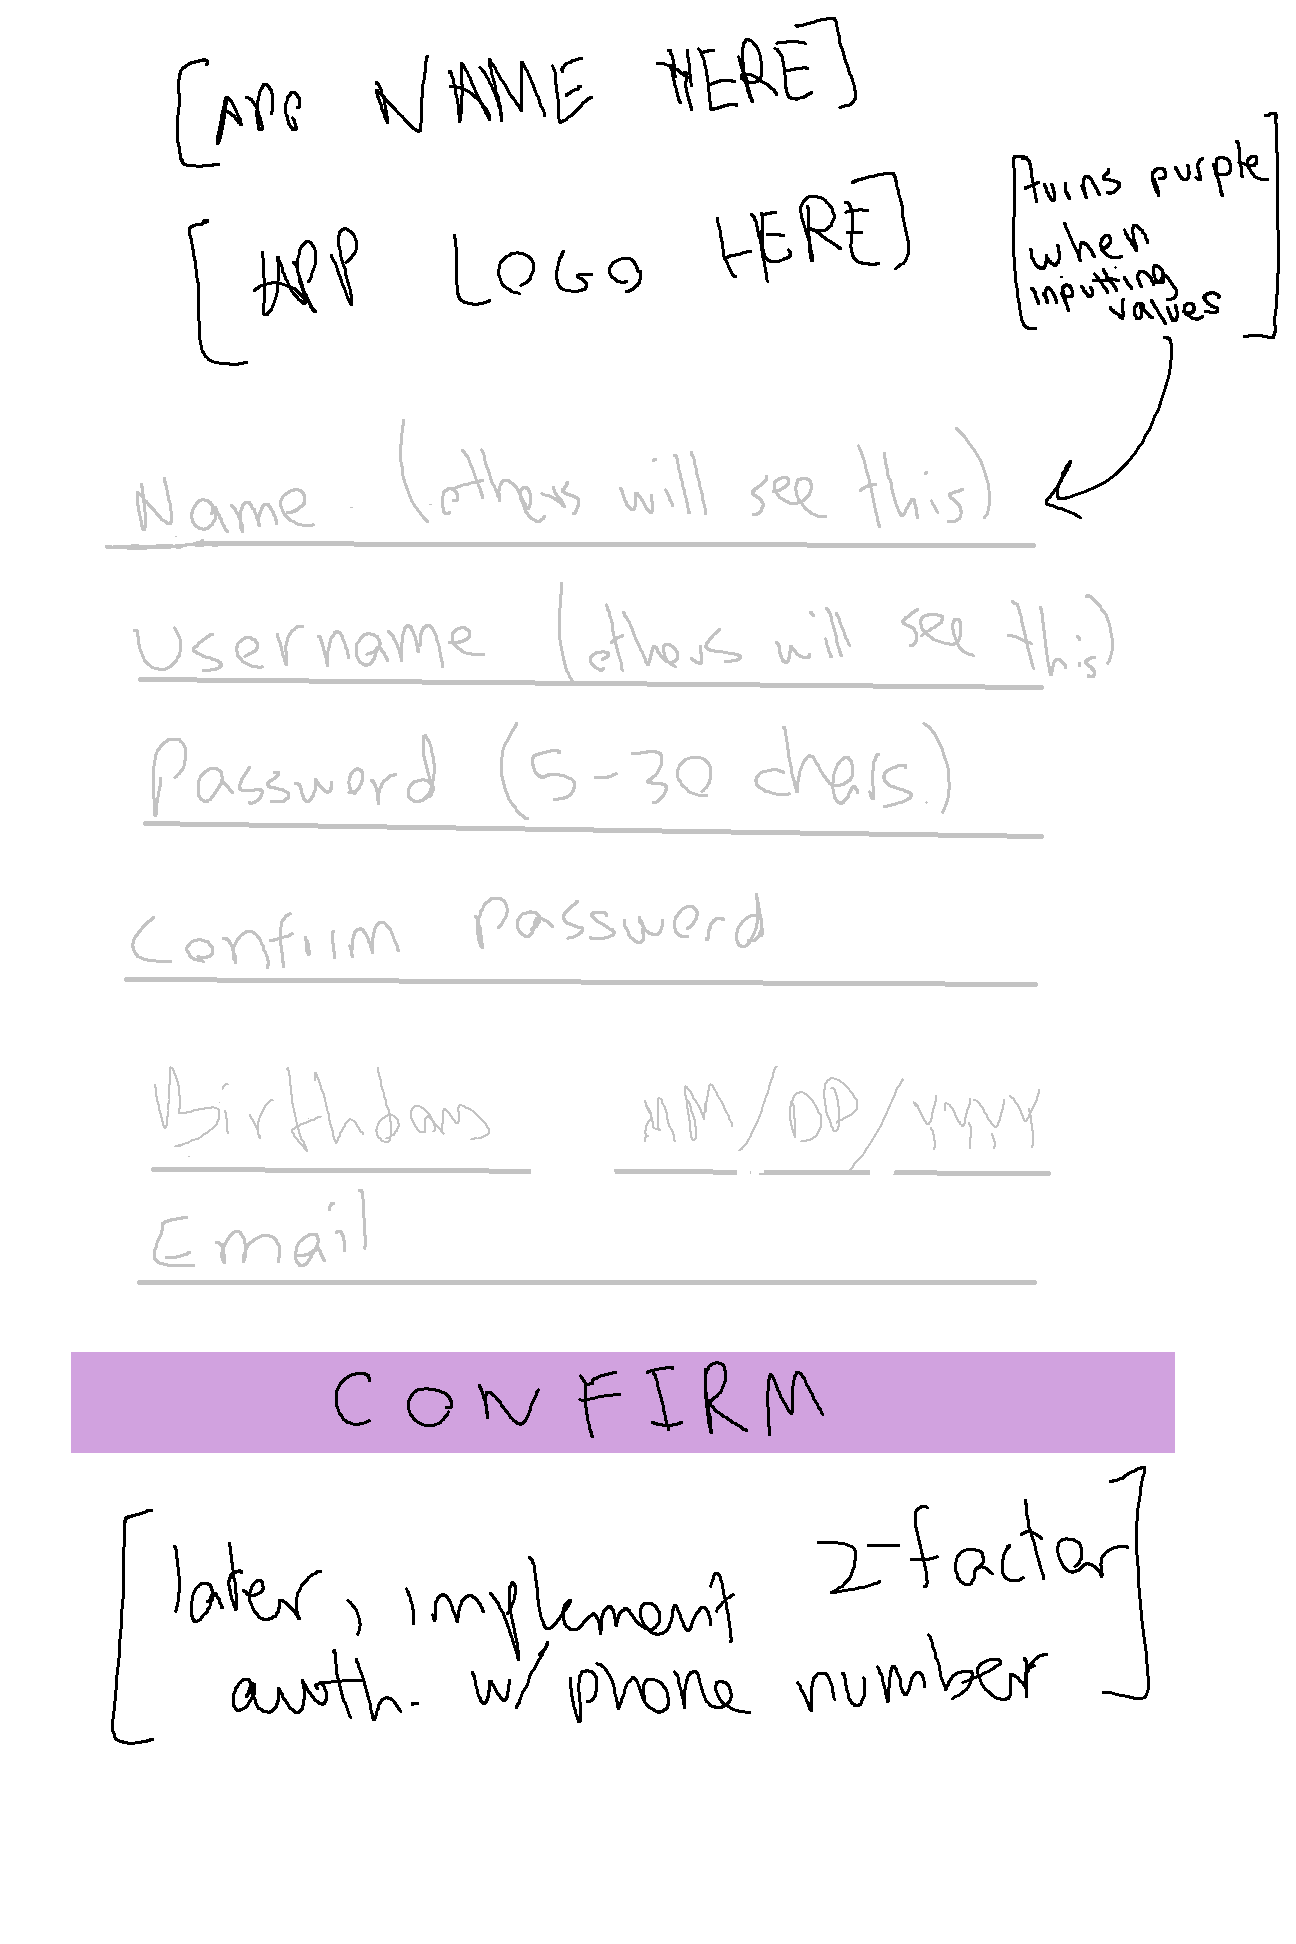 [APP NAME HERE]
[APP LOGO HERE]
[turns purple
when
inputting
values]
Name (others will see this)
Username (others will see this)
Password (5-30 chars.)
Confirm Password
Birthday MM/DD/YYYY
Email
CONFIRM
[later, implement 2-factor
auth. w/ phone number]